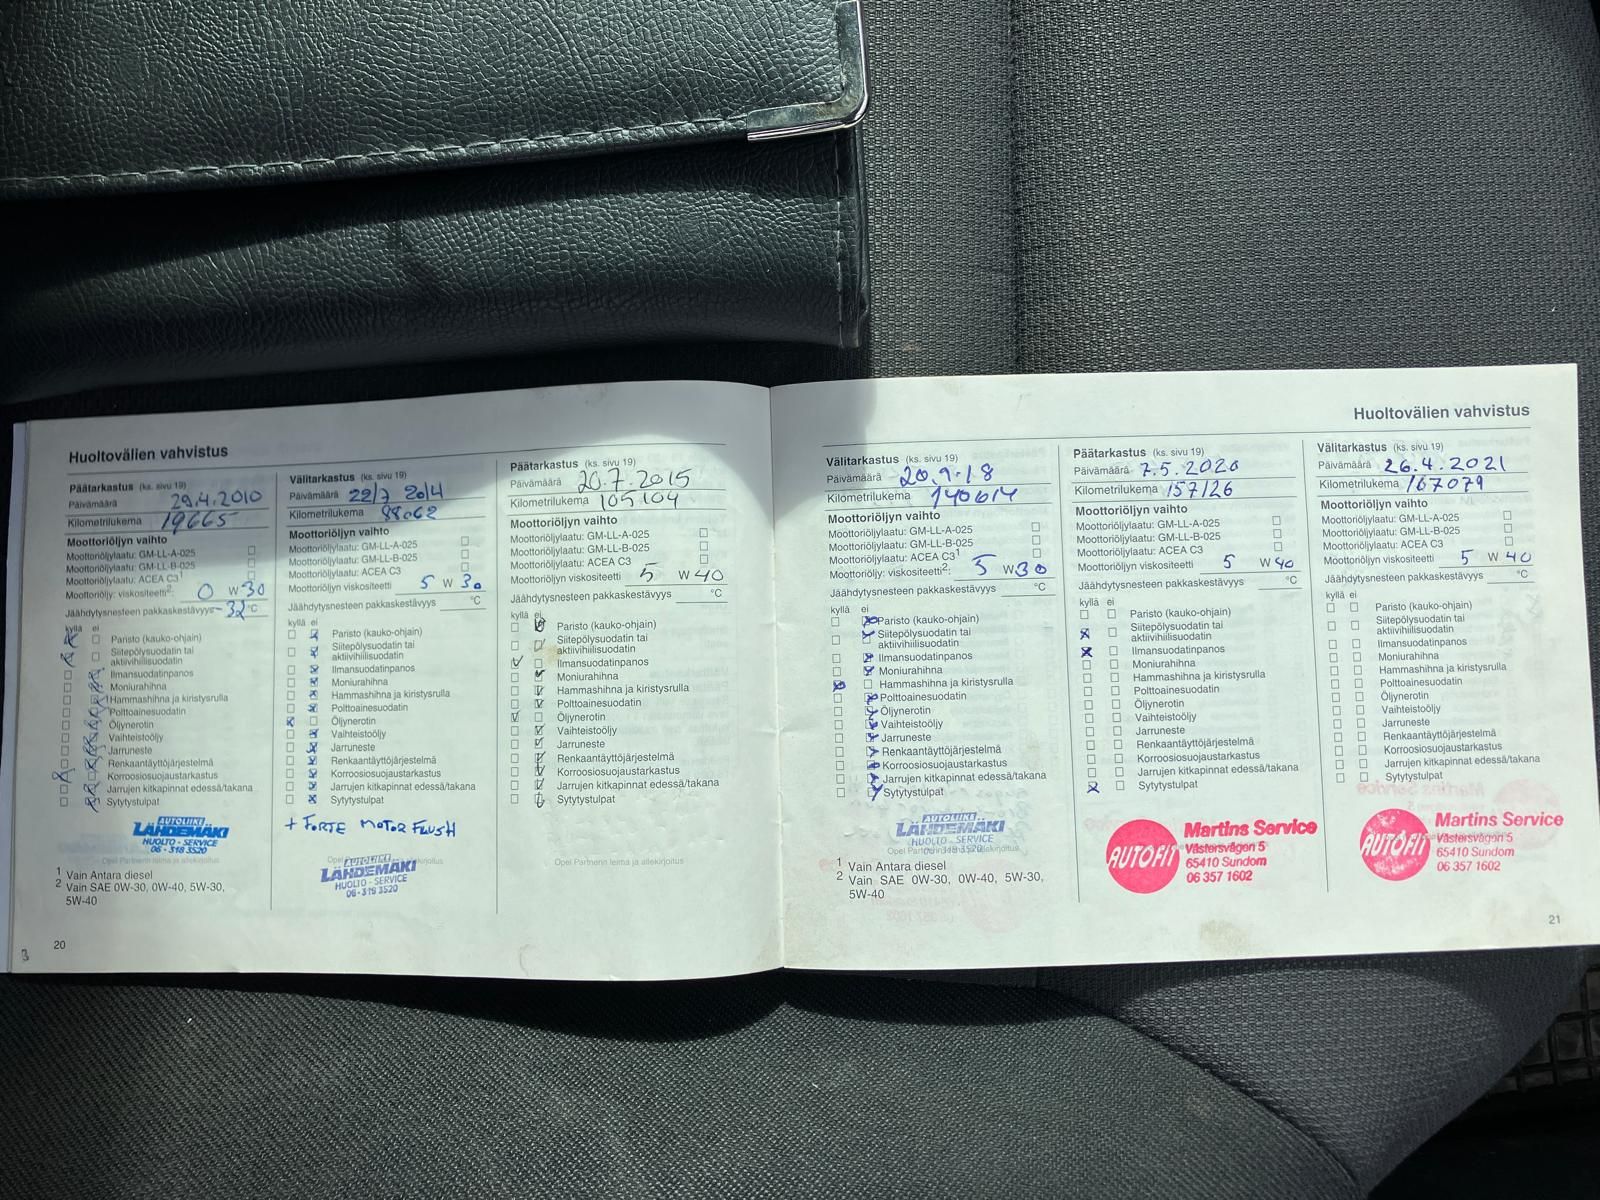 Huoltovälien vahvistus
Päätarkastus (ks. sivu 19)
Päivämäärä 29.4.2010
Kilometrilukema 19665
Moottoriöljyn vaihto
Moottoriöljylaatu: GM-LL-A-025
Moottoriöljylaatu: GM-LL-B-025
Moottoriöljylaatu: ACEA C3¹
Moottoriöljy: viskositeetti²: 0 W-30
Jäähdytysnesteen pakkaskestävyys -32 °C
kyllä ei
Paristo (kauko-ohjain)
Siitepölysuodatin tai
aktiivihiilisuodatin
Ilmansuodatinpanos
Moniurahihna
Hammashihna ja kiristysrulla
Polttoainesuodatin
Öljynerotin
Vaihteistoöljy
Jarruneste
Renkaantäyttöjärjestelmä
Korroosiosuojaustarkastus
Jarrujen kitkapinnat edessä/takana
Sytytystulpat
AUTOLIIKE
LÄHDEMÄKI
HUOLTO - SERVICE
06 - 318 3520
¹ Vain Antara diesel
² Vain SAE 0W-30, 0W-40, 5W-30,
5W-40
20
Välitarkastus (ks. sivu 19)
Päivämäärä 22/7 2014
Kilometrilukema 88062
Moottoriöljyn vaihto
Moottoriöljylaatu: GM-LL-A-025
Moottoriöljylaatu: GM-LL-B-025
Moottoriöljylaatu: ACEA C3
Moottoriöljyn viskositeetti 5 W 30
Jäähdytysnesteen pakkaskestävyys °C
kyllä ei
Paristo (kauko-ohjain)
Siitepölysuodatin tai
aktiivihiilisuodatin
Ilmansuodatinpanos
Moniurahihna
Hammashihna ja kiristysrulla
Polttoainesuodatin
Öljynerotin
Vaihteistoöljy
Jarruneste
Renkaantäyttöjärjestelmä
Korroosiosuojaustarkastus
Jarrujen kitkapinnat edessä/takana
Sytytystulpat
+ FORTE MOTOR FLUSH
AUTOLIIKE
LÄHDEMÄKI
HUOLTO - SERVICE
06 - 318 3520
Päätarkastus (ks. sivu 19)
Päivämäärä 20.7.2015
Kilometrilukema 105104
Moottoriöljyn vaihto
Moottoriöljylaatu: GM-LL-A-025
Moottoriöljylaatu: GM-LL-B-025
Moottoriöljylaatu: ACEA C3
Moottoriöljyn viskositeetti 5 W 40
Jäähdytysnesteen pakkaskestävyys °C
kyllä ei
Paristo (kauko-ohjain)
Siitepölysuodatin tai
aktiivihiilisuodatin
Ilmansuodatinpanos
Moniurahihna
Hammashihna ja kiristysrulla
Polttoainesuodatin
Öljynerotin
Vaihteistoöljy
Jarruneste
Renkaantäyttöjärjestelmä
Korroosiosuojaustarkastus
Jarrujen kitkapinnat edessä/takana
Sytytystulpat
Opel Partnerin leima ja allekirjoitus
Huoltovälien vahvistus
Välitarkastus (ks. sivu 19)
Päivämäärä 20.9.18
Kilometrilukema 140614
Moottoriöljyn vaihto
Moottoriöljylaatu: GM-LL-A-025
Moottoriöljylaatu: GM-LL-B-025
Moottoriöljylaatu: ACEA C3¹
Moottoriöljy: viskositeetti²: 5 W 30
Jäähdytysnesteen pakkaskestävyys °C
kyllä ei
Paristo (kauko-ohjain)
Siitepölysuodatin tai
aktiivihiilisuodatin
Ilmansuodatinpanos
Moniurahihna
Hammashihna ja kiristysrulla
Polttoainesuodatin
Öljynerotin
Vaihteistoöljy
Jarruneste
Renkaantäyttöjärjestelmä
Korroosiosuojaustarkastus
Jarrujen kitkapinnat edessä/takana
Sytytystulpat
AUTOLIIKE
LÄHDEMÄKI
HUOLTO - SERVICE
06-318 3520
¹ Vain Antara diesel
² Vain SAE 0W-30, 0W-40, 5W-30,
5W-40
Päätarkastus (ks. sivu 19)
Päivämäärä 7.5.2020
Kilometrilukema 157126
Moottoriöljyn vaihto
Moottoriöljylaatu: GM-LL-A-025
Moottoriöljylaatu: GM-LL-B-025
Moottoriöljylaatu: ACEA C3
Moottoriöljyn viskositeetti 5 W 40
Jäähdytysnesteen pakkaskestävyys °C
kyllä ei
Paristo (kauko-ohjain)
Siitepölysuodatin tai
aktiivihiilisuodatin
Ilmansuodatinpanos
Moniurahihna
Hammashihna ja kiristysrulla
Polttoainesuodatin
Öljynerotin
Vaihteistoöljy
Jarruneste
Renkaantäyttöjärjestelmä
Korroosiosuojaustarkastus
Jarrujen kitkapinnat edessä/takana
Sytytystulpat
AUTOFIT
Martins Service
Västersvägen 5
65410 Sundom
06 357 1602
Välitarkastus (ks. sivu 19)
Päivämäärä 26.4.2021
Kilometrilukema 167079
Moottoriöljyn vaihto
Moottoriöljylaatu: GM-LL-A-025
Moottoriöljylaatu: GM-LL-B-025
Moottoriöljylaatu: ACEA C3
Moottoriöljyn viskositeetti 5 W 40
Jäähdytysnesteen pakkaskestävyys °C
kyllä ei
Paristo (kauko-ohjain)
Siitepölysuodatin tai
aktiivihiilisuodatin
Ilmansuodatinpanos
Moniurahihna
Hammashihna ja kiristysrulla
Polttoainesuodatin
Öljynerotin
Vaihteistoöljy
Jarruneste
Renkaantäyttöjärjestelmä
Korroosiosuojaustarkastus
Jarrujen kitkapinnat edessä/takana
Sytytystulpat
AUTOFIT
Martins Service
Västersvägen 5
65410 Sundom
06 357 1602
21